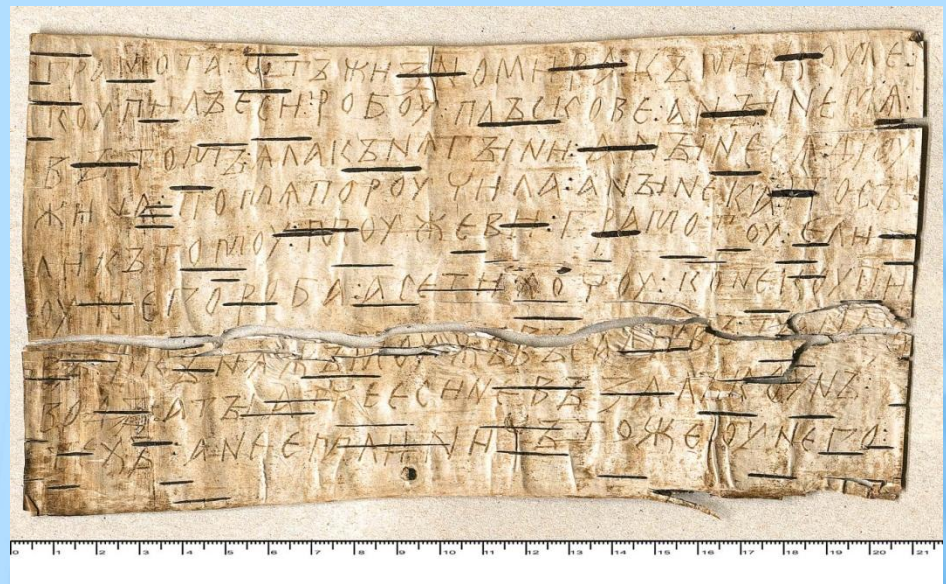 ГРАМОТА : ѠТЪ ЖИЗНОМИРА : КЪ МИКОУЛЕ :
КОУПИЛЪ ЕСИ : РОБОУ : ПЛЪСКОВЕ : А НЫНЕ МѦ :
ВЪ ТОМЪ : АЛА КЪНѦГЫНИ : А НЫНЕ СѦ ДРОУ
ЖИНА : ПО МѦ ПОРОУЧИЛА : А НЫНЕ КА : ПОСЪ
ЛИ КЪ ТОМОУ : МОУЖЕВИ : ГРАМОТОУ : ЕЛИ
ОУ НЕГО РОБА : А СЕ ТИ ХОЧОУ : КОНЕ КОУПИ
ВЪ : И КЪНѦЖЪ МОУЖЪ ВЪСАДИВЪ : ТА НА СЪ
ВОДЫ : А ТЫ АТЧЕ ЕСИ НЕ ВЪЗАЛЪ КОУНЪ :
ТЕХЪ : А НЕ ЕМЛИ : НИЧЪТО ЖЕ ОУ НЕГО :
0 1 2 3 4 5 6 7 8 9 10 11 12 13 14 15 16 17 18 19 20 21